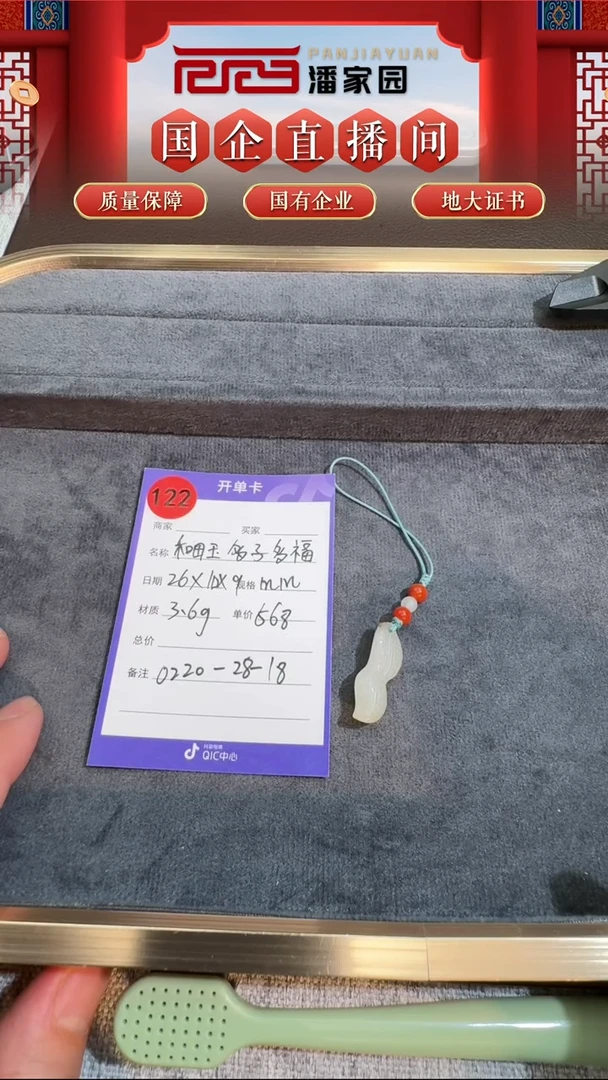 PANJIAYUAN
潘家园
国企直播间
质量保障 国有企业 地大证书
122 开单卡
商家 买家
名称 和田玉 多子多福
日期 26X10X9 规格 mm
材质 3.6g 单价 568
总价
备注 0220-28-18
QIC中心